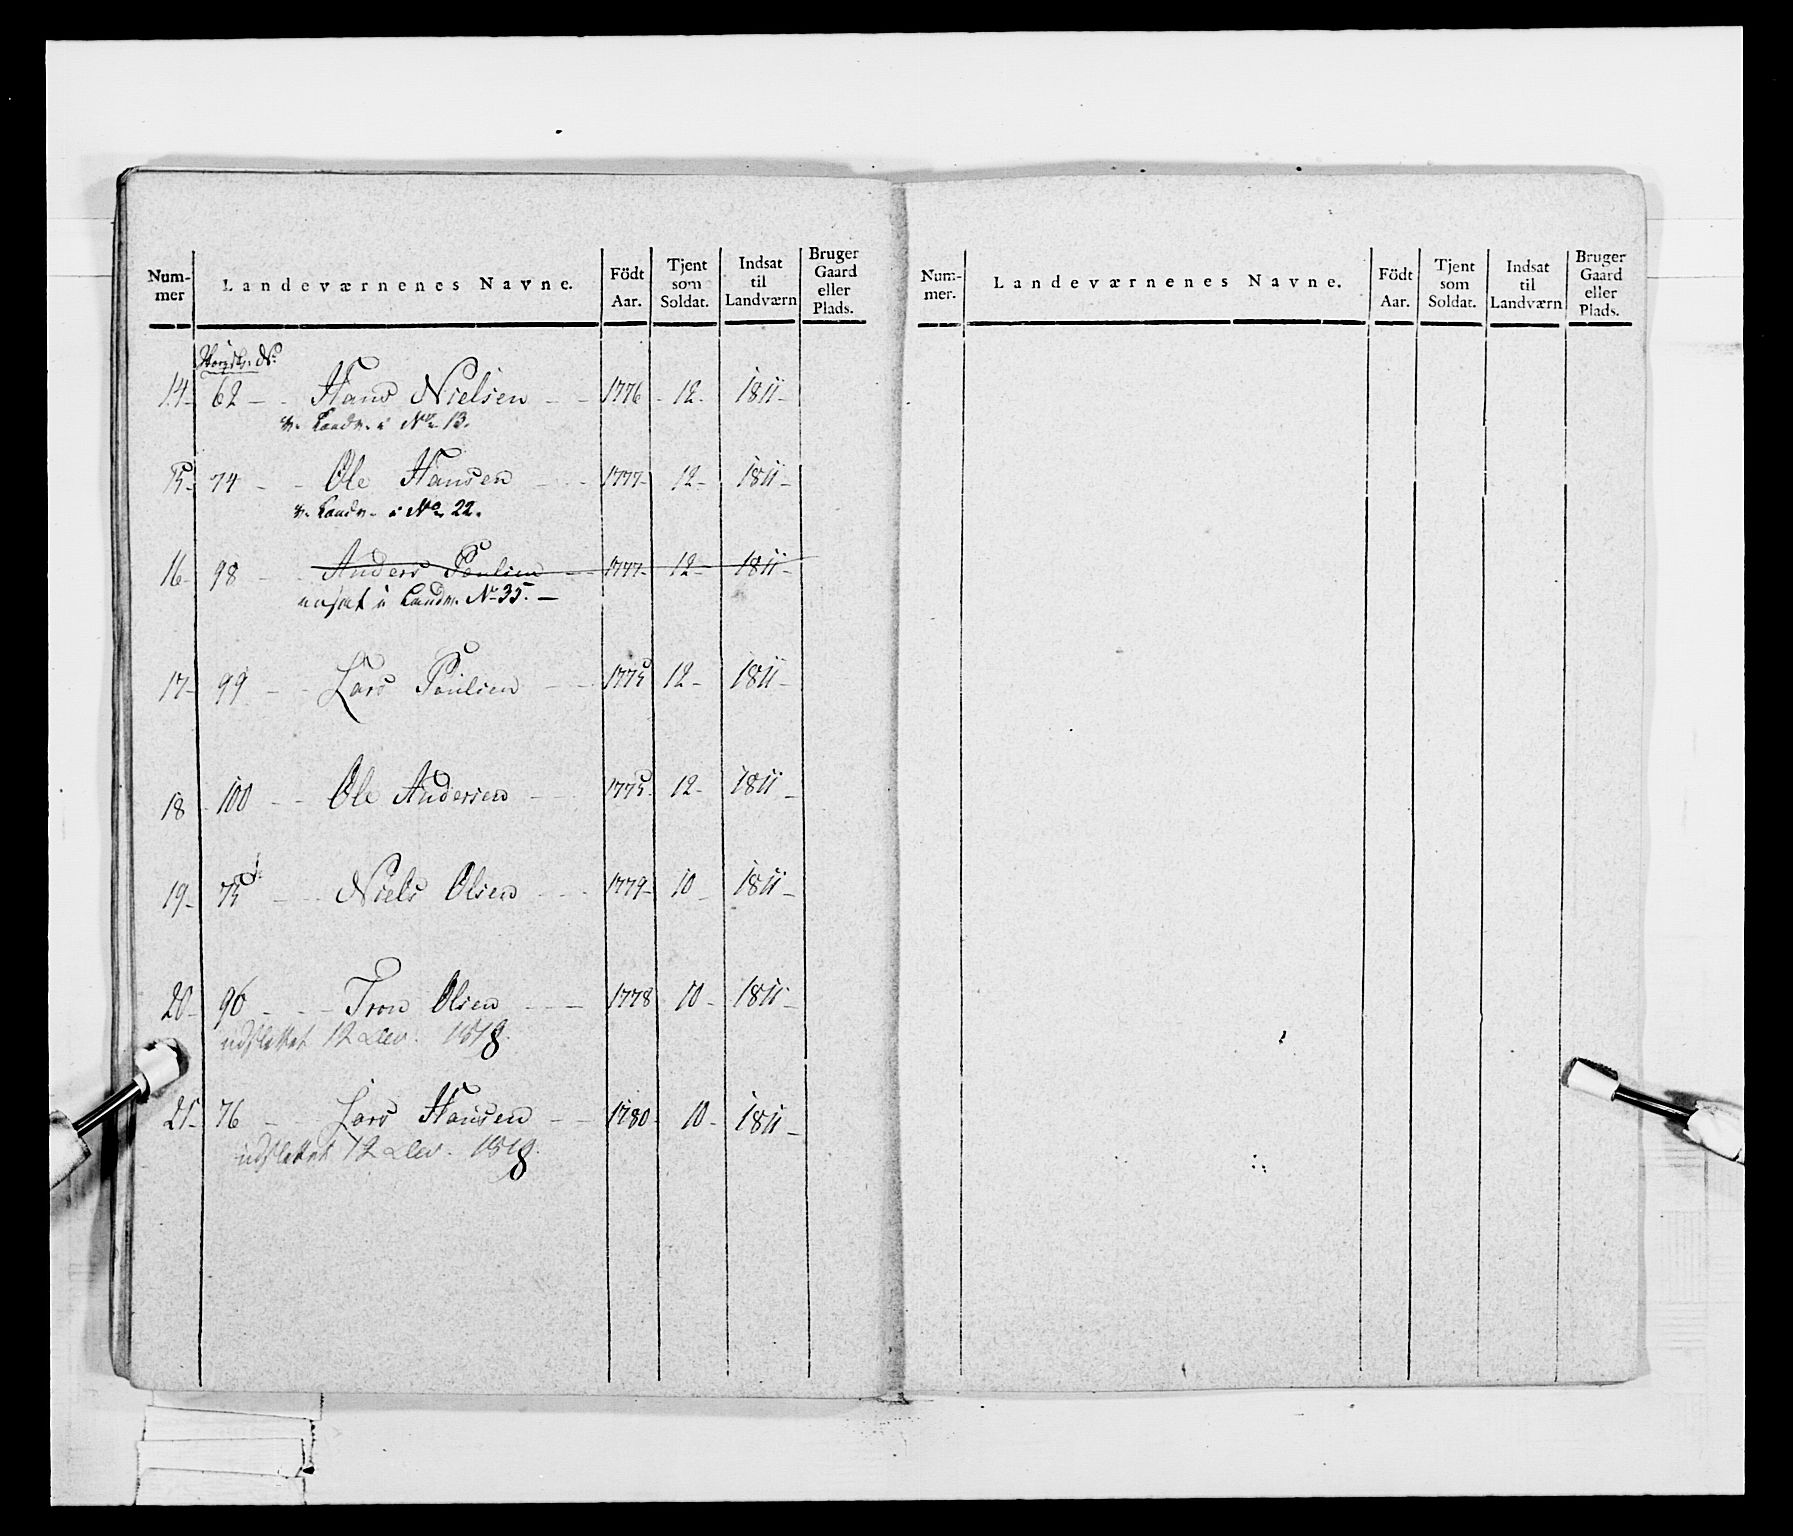 Num-
mer
Landeværnenes Navne.
Födt
Aar.
Tjent
som
Soldat.
Indsat
til
Landværn
Bruger
Gaard
eller
Plads.
14- 62 - - Hans Nielsen - - 1776 - 12- 1811-
v. Landv. i No 13.
15- 74 - - Ole Hansen - - 1777- 12- 1811-
v. Landv. i No 22.
16- 98 - - Anders Poulsen - - 1777- 12- 1811-
ansat i Landv. No 35. -
17- 99 - - Lars Poulsen - - 1775 12- 1811-
18 - 100 - - Ole Andersen - - 1775- 12- 1811-
19- 75 - - Niels Olsen - - 1779- 10- 1811-
20- 96 - - Tron Olsen - - 1778 10- 1811-
udslettet 12 Dec. 1818.
21- 76 - - Lars Hansen - - 1780- 10- 1811-
udslettet 12 Dec. 1818.
Num-
mer.
Landeværnenes Navne.
Födt
Aar.
Tjent
som
Soldat.
Indsat
til
Landværn
Bruger
Gaard
eller
Plads.